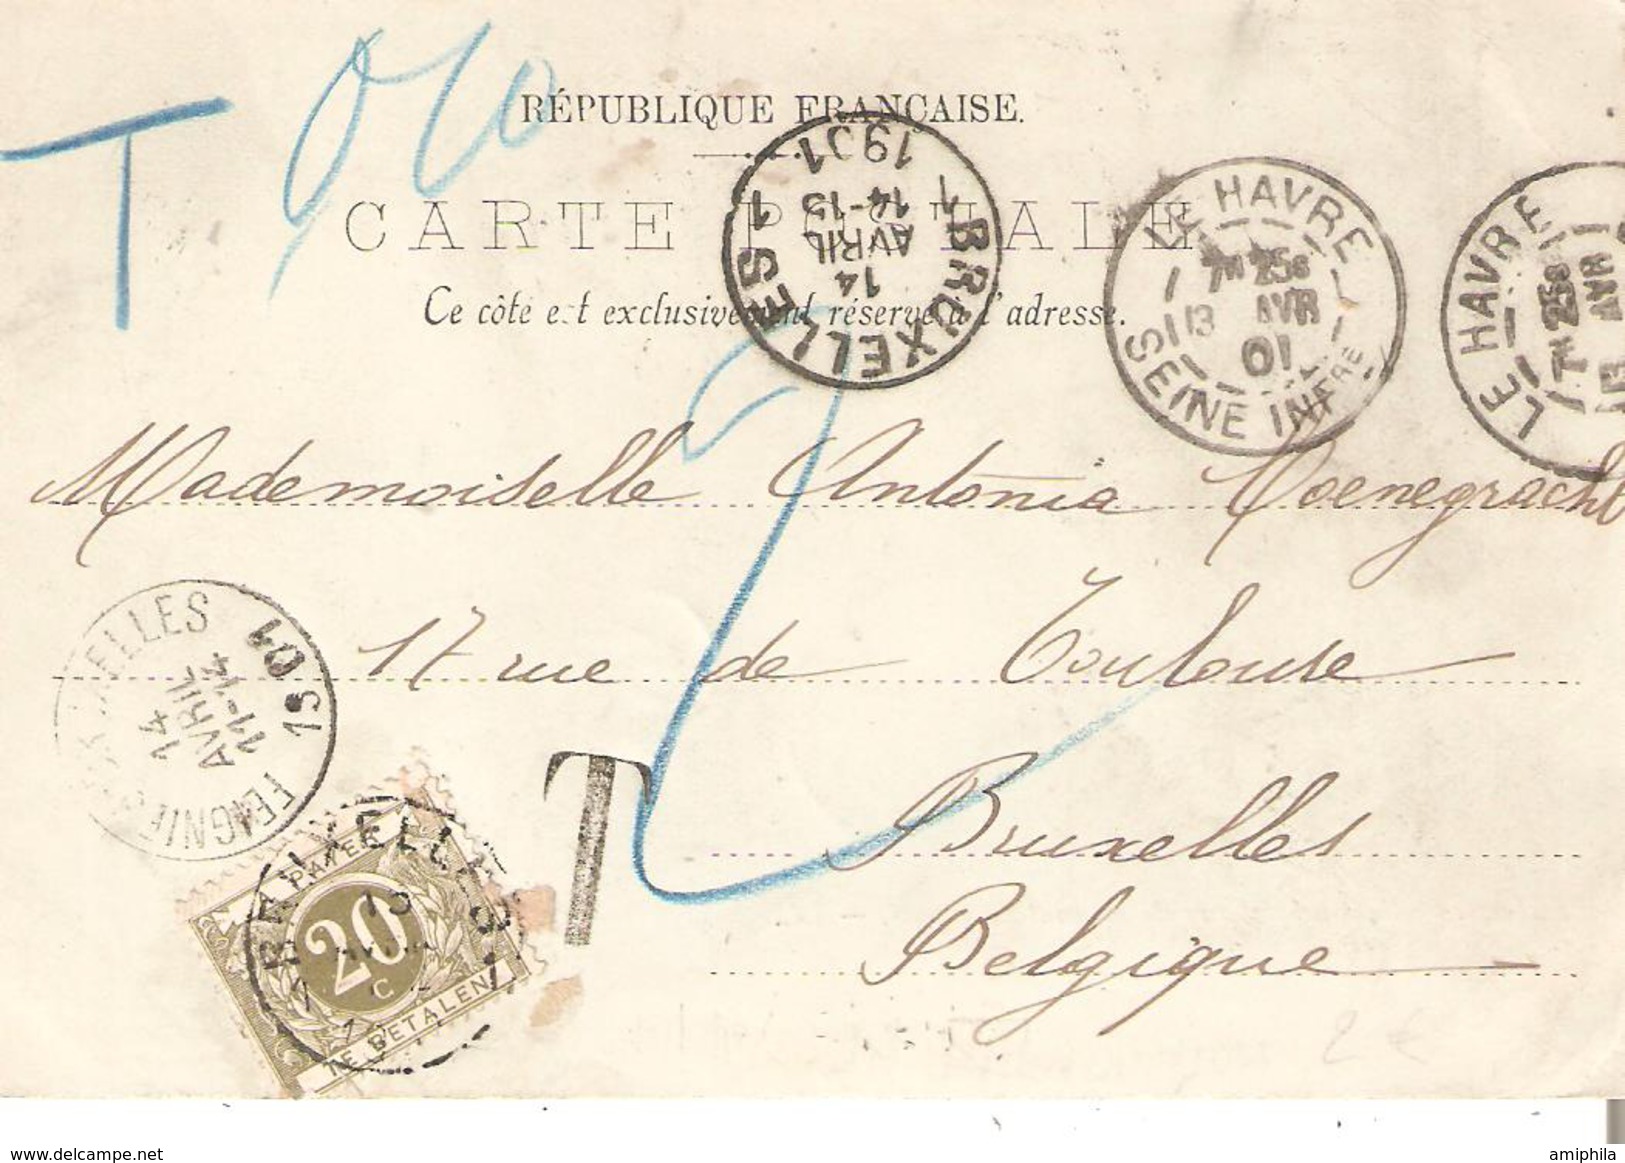 T 0,10
RÉPUBLIQUE FRANÇAISE.
CARTE POSTALE
Ce côté est exclusivement réservé à l'adresse.
1 BRUXELLES 1
14
AVRIL
14-15
1901
LE HAVRE
7H 25S
13 AVR
01
SEINE INFRE
LE HAVRE
7H 25S
13 AVR
Mademoiselle Antonia Moenegracht
17 rue de Toulouse
Bruxelles
Belgique
14
AVRIL
11-12
1901
T
A PAYER
20
C.
TE BETALEN
BRUXELLES
delcampe.net
amiphila